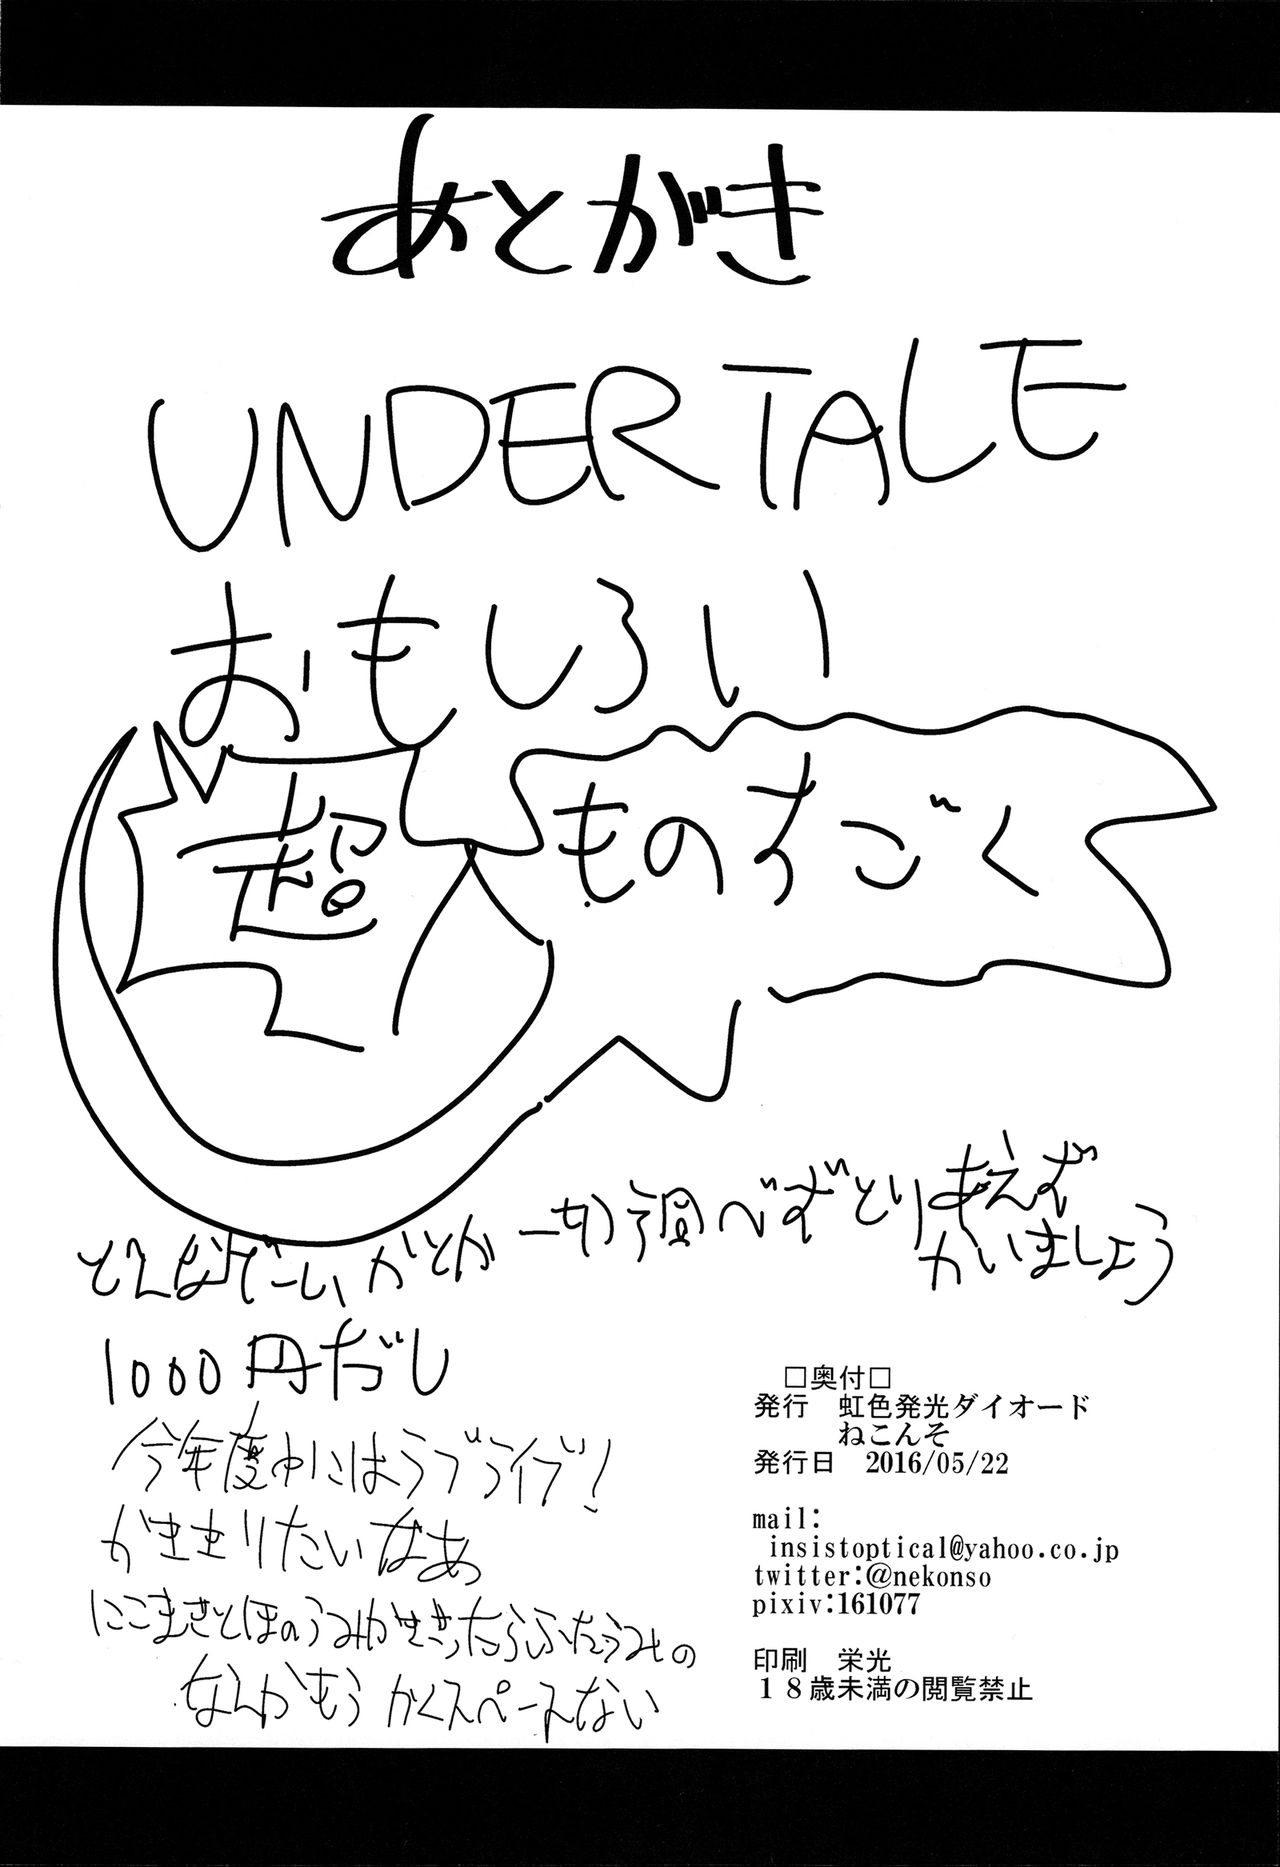 あとがき
UNDERTALE
おもしろい
超
ものすごく
どんなゲームかとか一切調べずとりあえず
かいましょう
1000円だし
今年度中にはラブライブ!
かききりたいなあ
にこまきとほのうみかききったらふたうみの
なんかもうかくスペースない
□奥付□
発行 虹色発光ダイオード
ねこんそ
発行日 2016/05/22
mail:
insistoptical@yahoo.co.jp
twitter:@nekonso
pixiv:161077
印刷 栄光
18歳未満の閲覧禁止